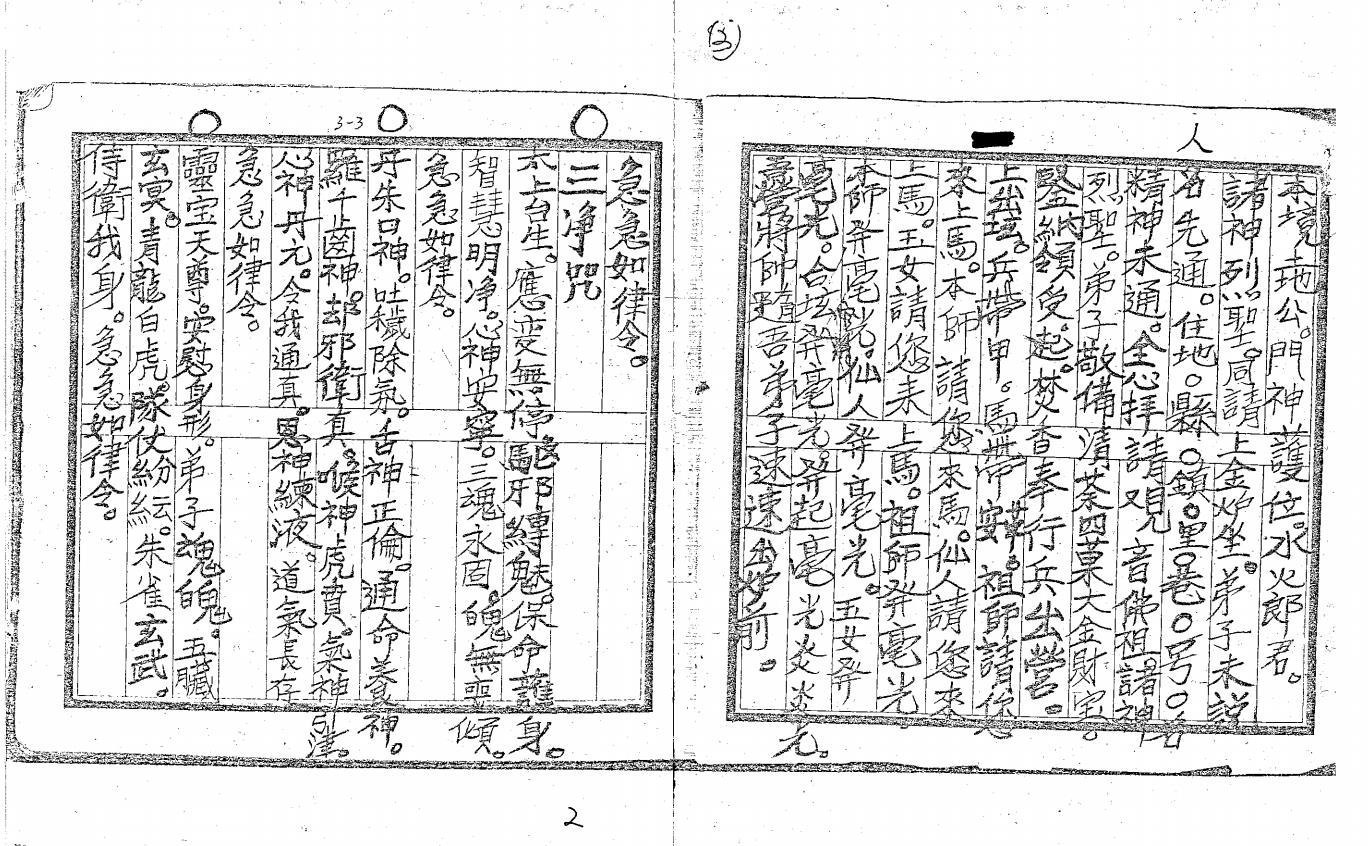 (3)
人
本境土地公。門神護位。水火郎君。
諸神列聖。同請上金炉坐。弟子未説
名先通。住地。縣〇鎮。里巷〇号〇名
精神未通。全心拝請观音佛祖諸神
烈聖。弟子敬備清茶四菓大金財宝。
鑒納領受。起焚香奉行兵出營。
上出壇。兵帶甲。馬帶鞍。祖師請您
來上馬。本師請您來馬。仙人請您來
上馬。玉女請您来上馬。祖師發毫光
本師發毫光。仙人發毫光。玉女發
毫光。合壇發毫光。發起毫光炎炎光。
營將帥隨吾弟子速速出炉前。
3-3
急急如律令。
三净咒
太上台生。應変無停。駈邪縛魅。保命護身。
智慧明净。心神安寧。三魂永固。魄無喪傾。
急急如律令。
丹朱口神。吐穢除氣。舌神正倫。通命養神。
羅千齒神。却邪衛真。喉神虎賁。氣神引津。
心神丹元。令我通真。思神練液。道氣長存
急急如律令。
靈宝天尊。安慰身形。弟子魂魄。五臟
玄冥。青龍白虎。隊仗紛紜。朱雀玄武。
侍衛我身。急急如律令。
2